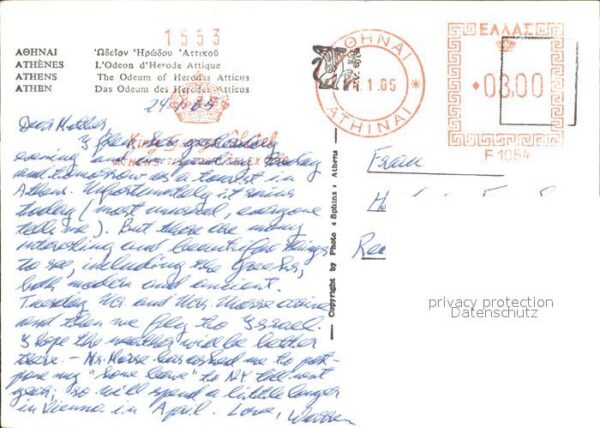 1553
ΑΘΗΝΑΙ Ὠδεῖον Ἡρώδου Ἀττικοῦ
ATHÈNES L'Odeon d'Herode Attique
ATHENS The Odeum of Herodes Atticus
ATHEN Das Odeum des Herodes Atticus
ΑΘΗΝΑΙ
1.65
ATHINAI
ΕΛΛΑΣ
03.00
F 1054
Dear Mother,
evening and
and tomorrow as a tourist in
Athens. Unfortunately it rains
today (most unusual, everyone
tells me). But there are many
interesting and beautiful things
to see, including the Greeks,
both modern and ancient.
Tuesday Mr and Mrs. Morse arrive
and then we fly to Israel.
I hope the weather will be better
there. – Mr. Morse has asked me to post-
pone my "home leave" to NY till next
year, so we'll spend a little longer
in Vienna in April. Love, Warren
Copyright by Photo «Sphinx» Athens
Frau
privacy protection
Datenschutz